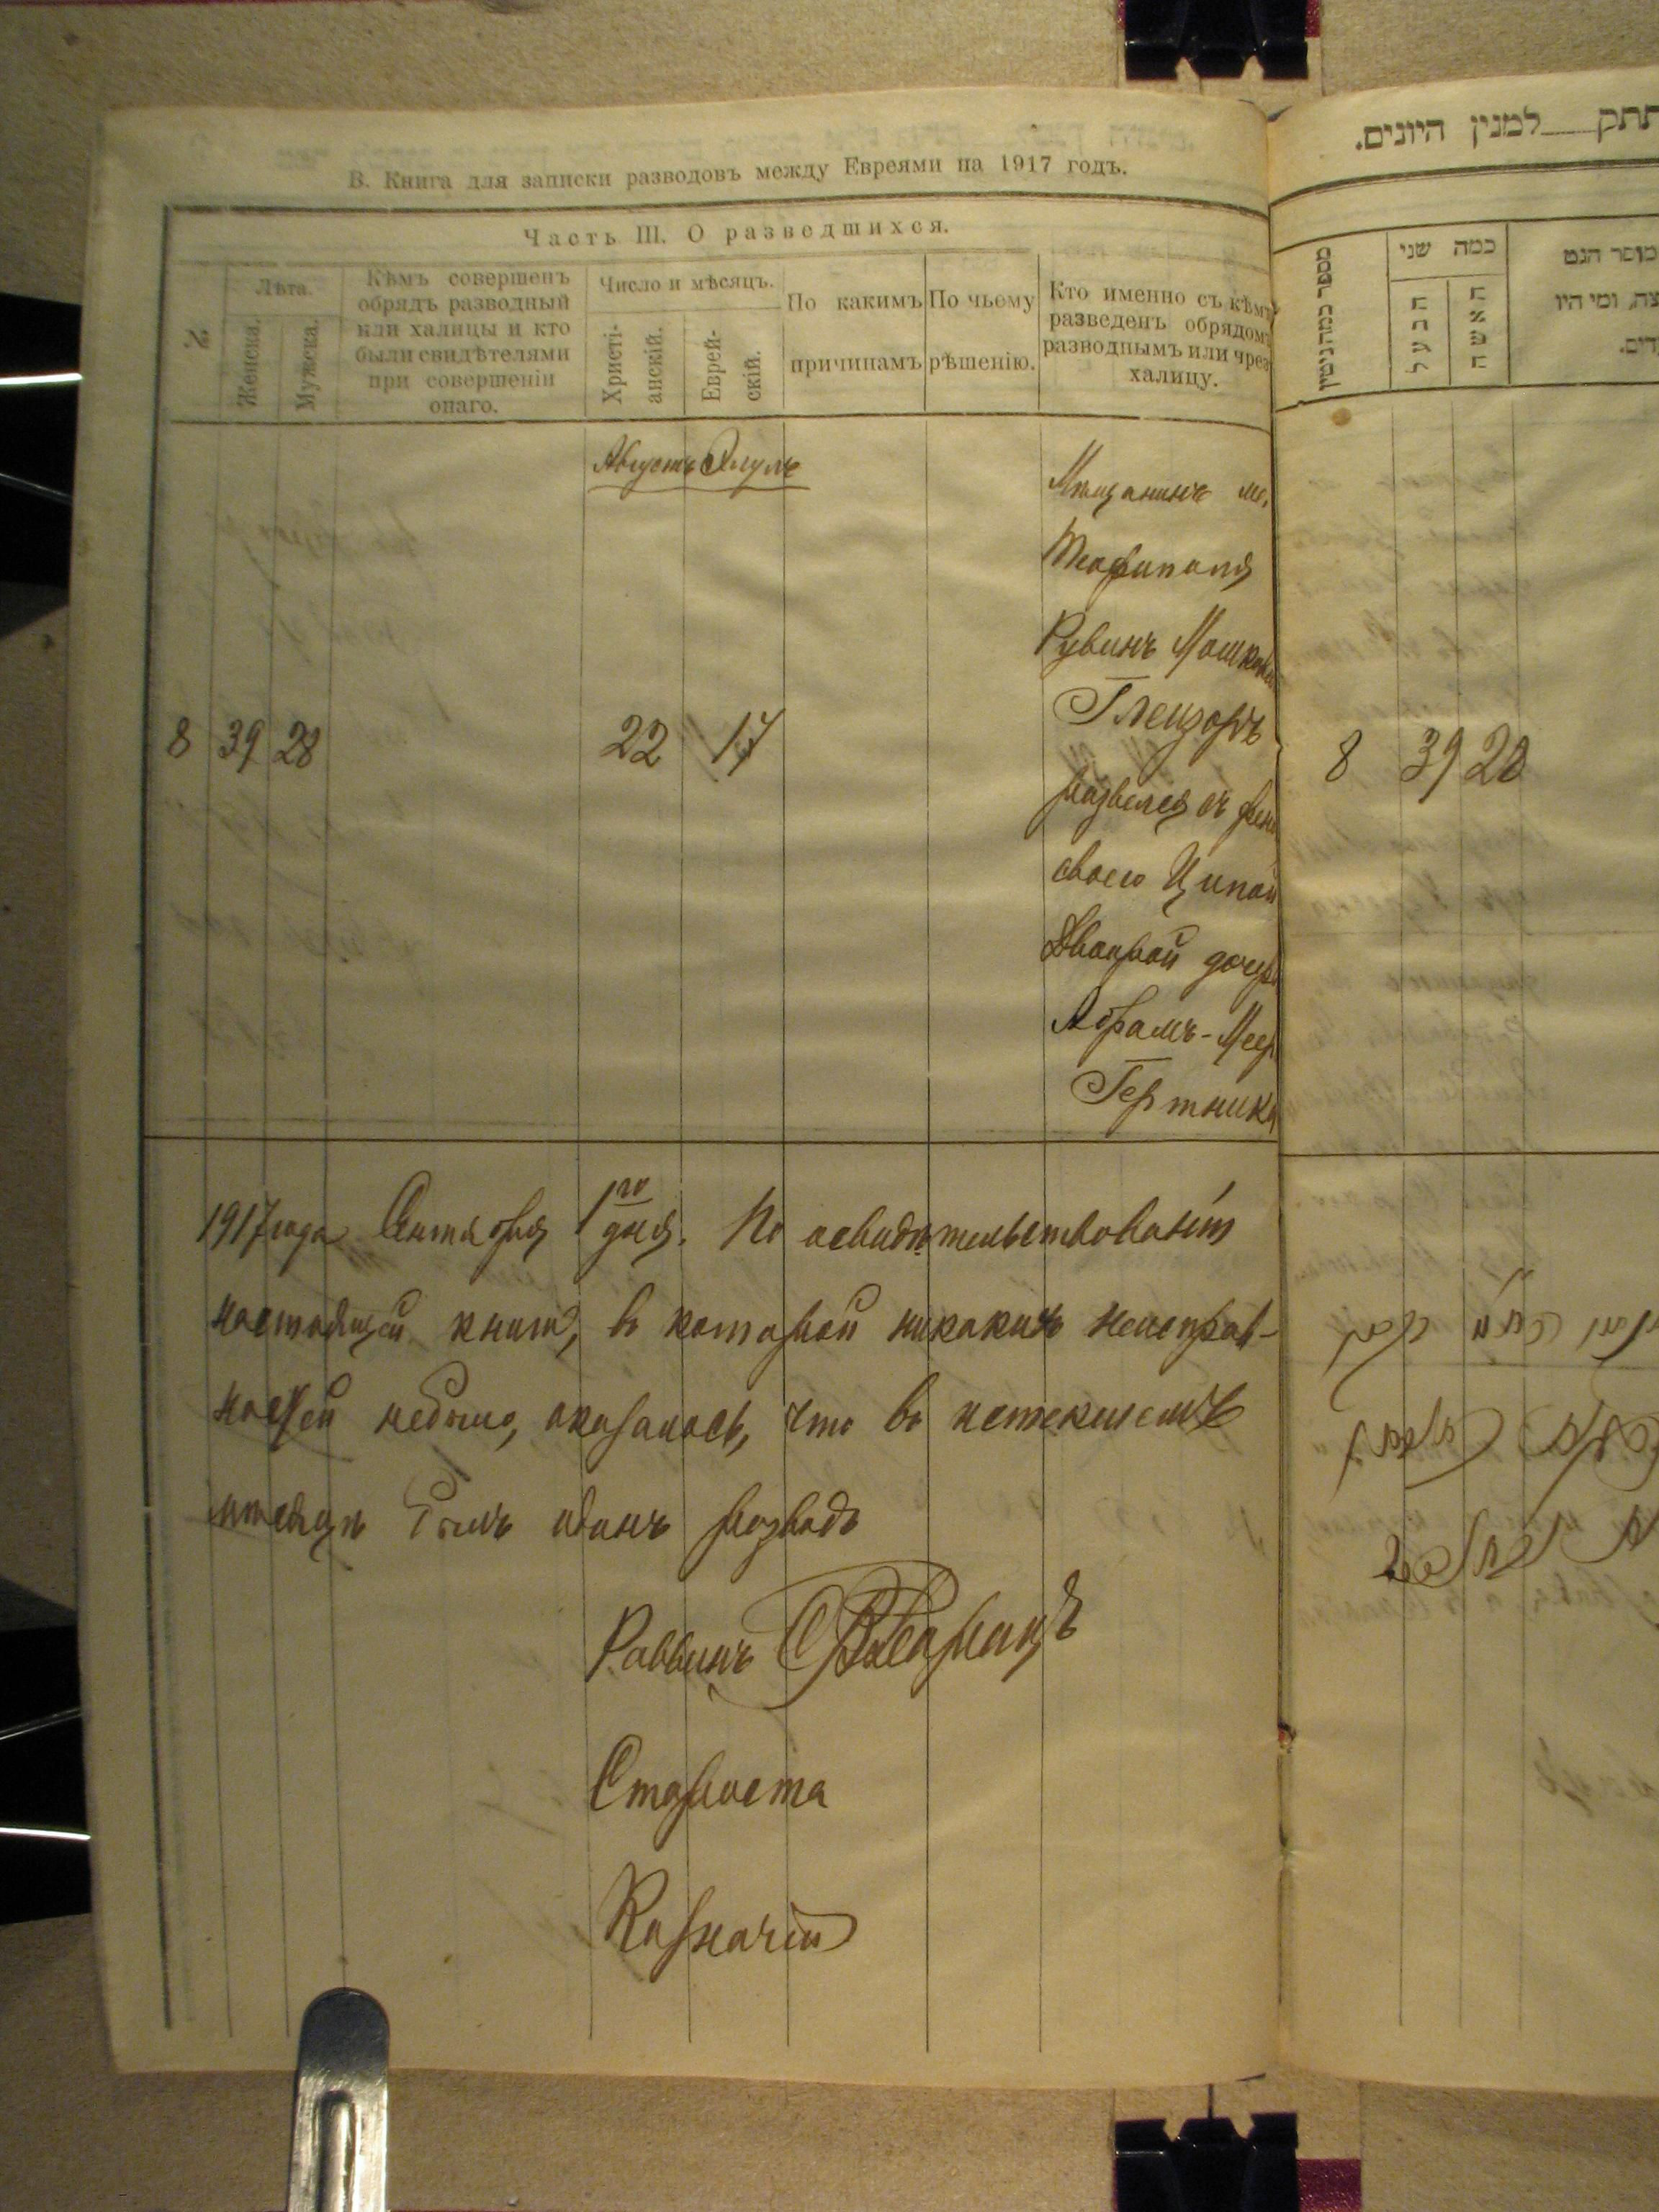 В. Книга для записки разводовъ между Евреями на 1917 годъ.
Часть III. О разведшихся.
№
Лѣта.
Женска.
Мужска.
Кѣмъ совершенъ
обрядъ разводный
или халицы и кто
были свидѣтелями
при совершеніи
онаго.
Число и мѣсяцъ.
Христі-
анскій.
Еврей-
скій.
По какимъ
причинамъ
По чьему
рѣшенію.
Кто именно съ кѣмъ
разведенъ обрядом
разводнымъ или чрез
халицу.
Августъ Элулъ
8 39 28 22 17
Мѣщанинъ м.
Теофиполя
Рувинъ Мошков
Глейзеръ
развелся съ жен
своею Ципой
Двойрой дочер
Абрамъ-Меер
Гертника
1917 года Сентября 1го дня. По освидѣтельствованіи
настоящей книги, въ которой никакихъ неисправ-
ностей небыло, оказалось, что въ истекшемъ
мѣсяцѣ былъ одинъ разводъ
Раввинъ
Староста
Казначей
תתק למנין היונים.
מספר כמה ניטין
כמה שני
הבעל
האשה
מוסר הגט
צה, ומי היו
דים.
8 39 28